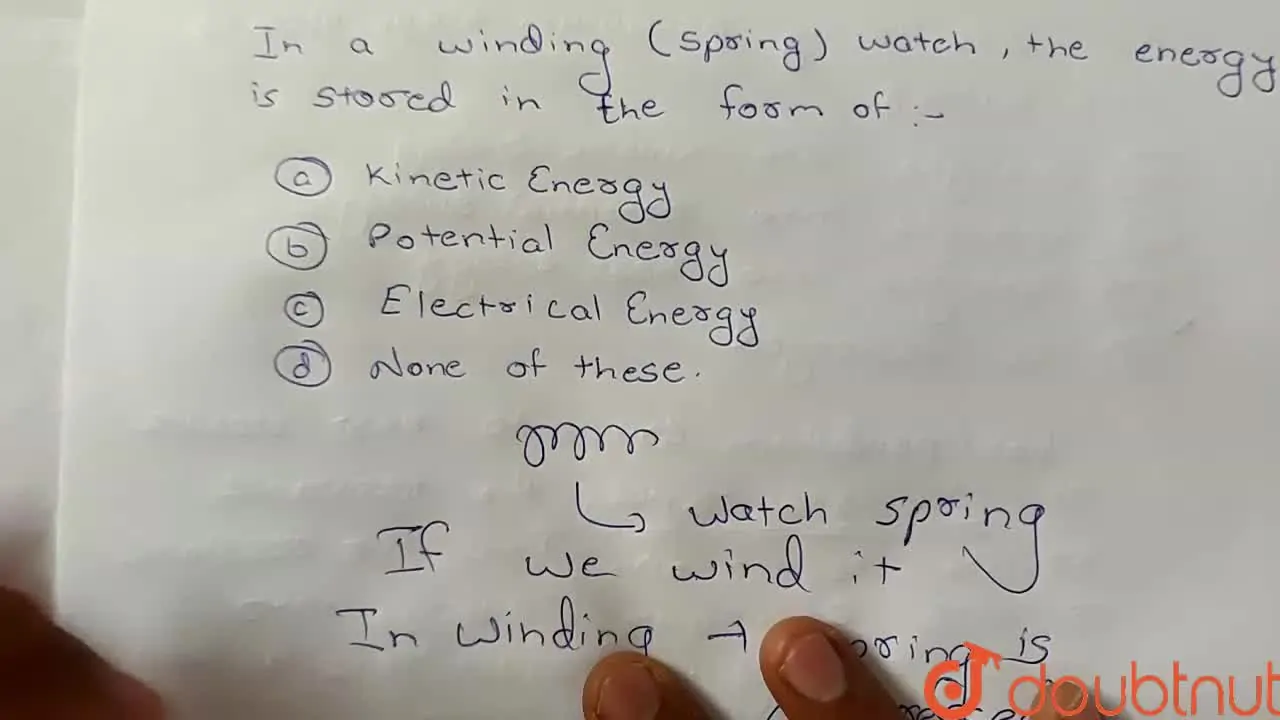 In a winding (spring) watch, the energy
is stored in the form of :-
a Kinetic Energy
b Potential Energy
c Electrical Energy
d None of these.
watch spring
If we wind it
In winding → is
doubtnut